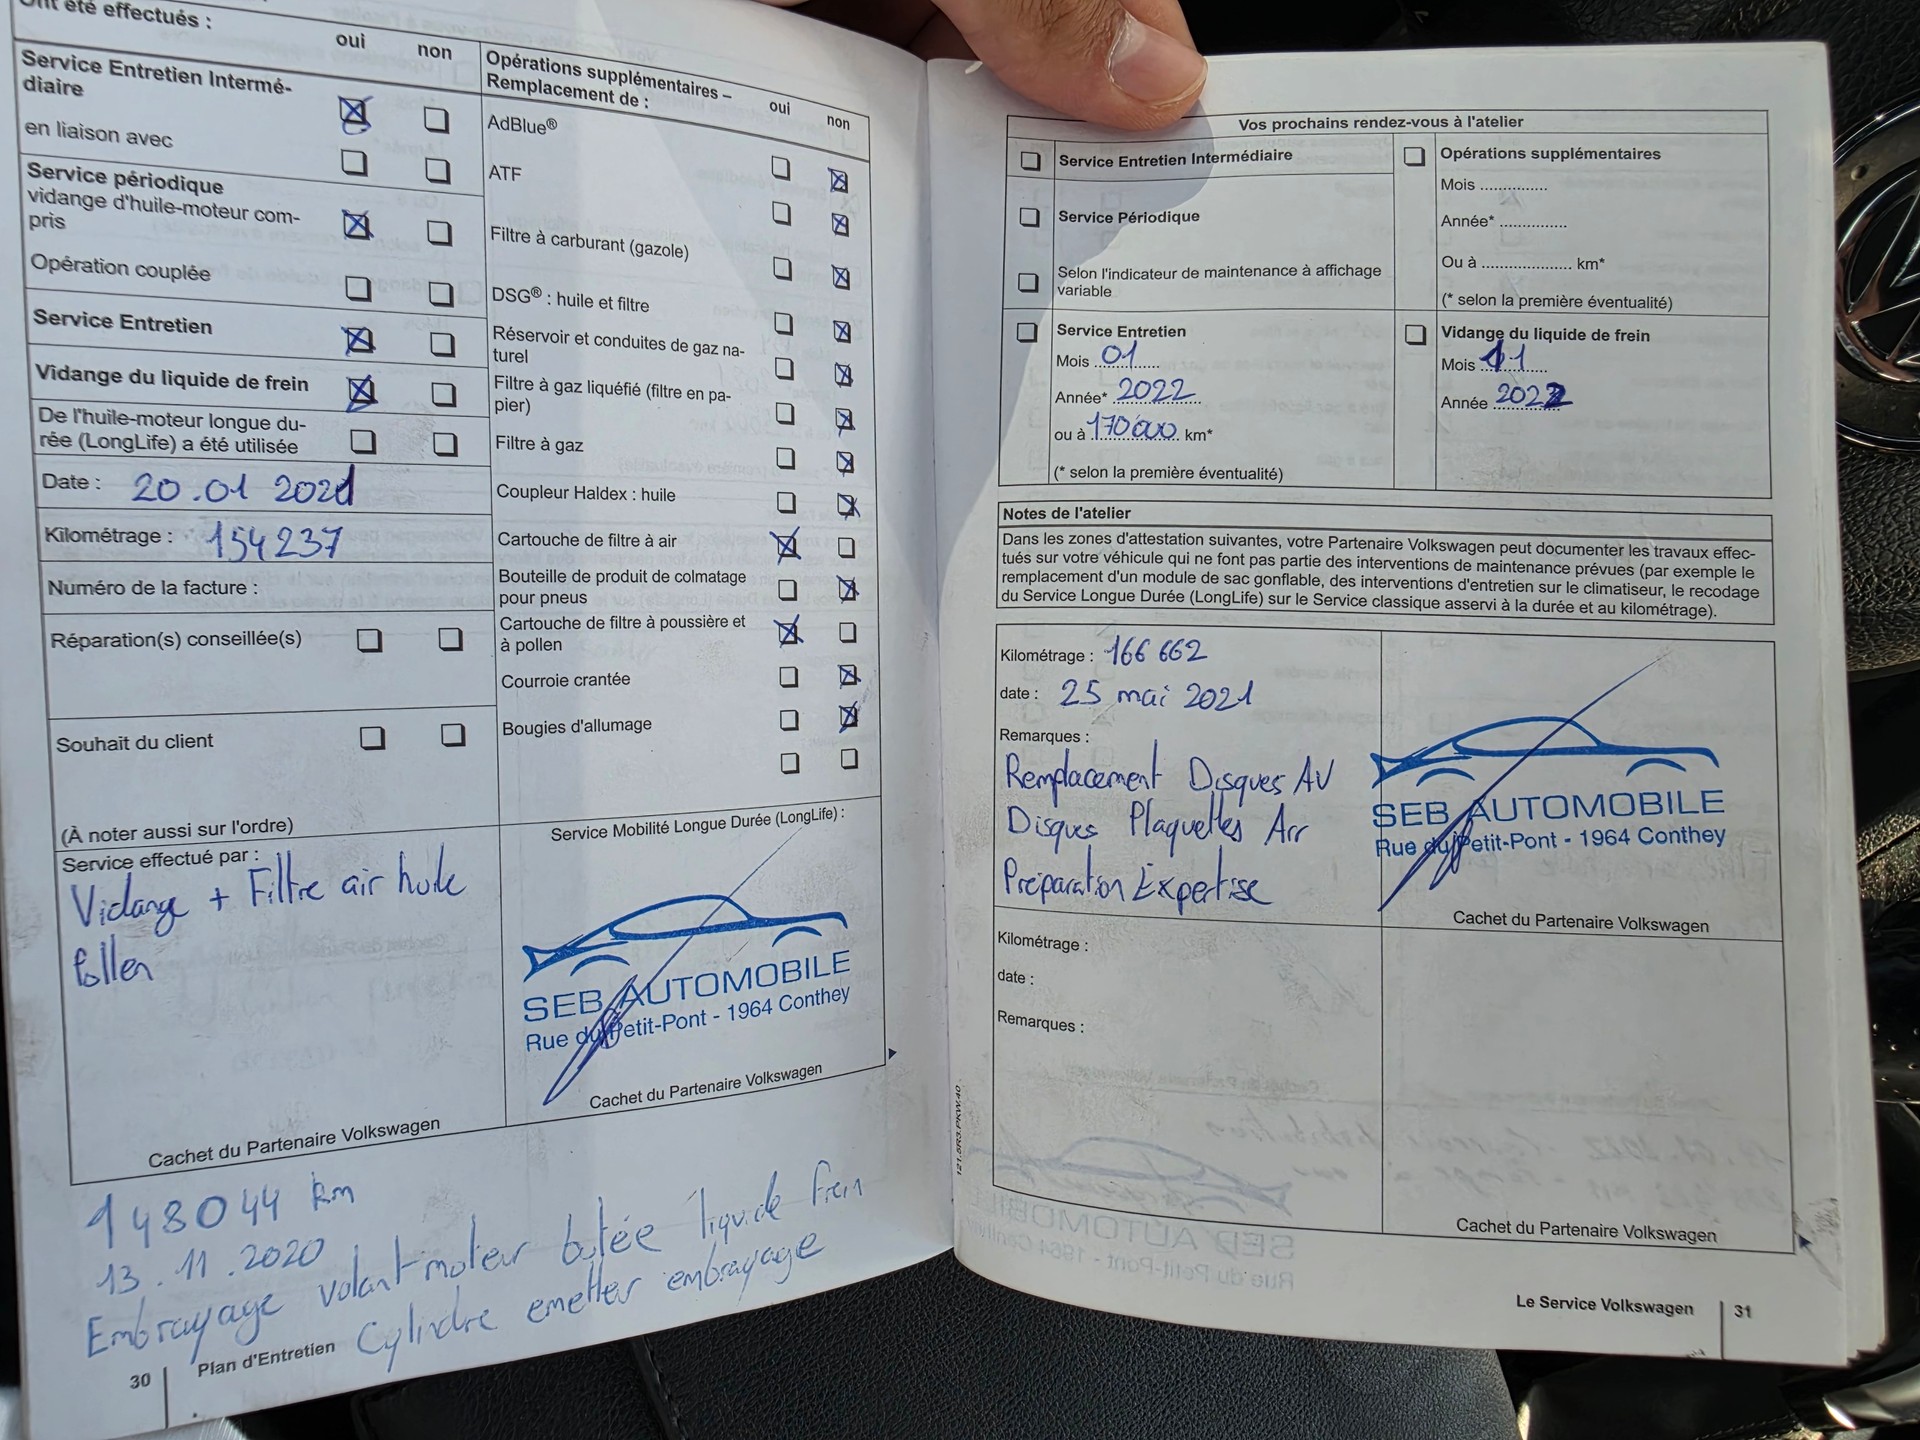 Ont été effectués :
oui non
Service Entretien Intermé-
diaire
en liaison avec
Service périodique
vidange d'huile-moteur com-
pris
Opération couplée
Service Entretien
Vidange du liquide de frein
De l'huile-moteur longue du-
rée (LongLife) a été utilisée
Date : 20.01 2021
Kilométrage : 154237
Numéro de la facture :
Réparation(s) conseillée(s)
Souhait du client
(À noter aussi sur l'ordre)
Service effectué par :
Vidange + Filtre air huile
Pollen
Cachet du Partenaire Volkswagen
Opérations supplémentaires –
Remplacement de :
oui non
AdBlue®
ATF
Filtre à carburant (gazole)
DSG® : huile et filtre
Réservoir et conduites de gaz na-
turel
Filtre à gaz liquéfié (filtre en pa-
pier)
Filtre à gaz
Coupleur Haldex : huile
Cartouche de filtre à air
Bouteille de produit de colmatage
pour pneus
Cartouche de filtre à poussière et
à pollen
Courroie crantée
Bougies d'allumage
Service Mobilité Longue Durée (LongLife) :
SEB AUTOMOBILE
Rue du Petit-Pont - 1964 Conthey
Cachet du Partenaire Volkswagen
148044 km
13.11.2020
Embrayage volant moteur butée liquide frein
Cylindre emetteur embrayage
30 Plan d'Entretien
Vos prochains rendez-vous à l'atelier
Service Entretien Intermédiaire
Service Périodique
Selon l'indicateur de maintenance à affichage
variable
Opérations supplémentaires
Mois ...............
Année* ...............
Ou à .................... km*
(* selon la première éventualité)
Service Entretien
Mois 01
Année* 2022
ou à 170000 km*
(* selon la première éventualité)
Vidange du liquide de frein
Mois 11
Année 2022
Notes de l'atelier
Dans les zones d'attestation suivantes, votre Partenaire Volkswagen peut documenter les travaux effec-
tués sur votre véhicule qui ne font pas partie des interventions de maintenance prévues (par exemple le
remplacement d'un module de sac gonflable, des interventions d'entretien sur le climatiseur, le recodage
du Service Longue Durée (LongLife) sur le Service classique asservi à la durée et au kilométrage).
Kilométrage : 166 662
date : 25 mai 2021
Remarques :
Remplacement Disques AV
Disques Plaquettes Arr
Préparation Expertise
SEB AUTOMOBILE
Rue du Petit-Pont - 1964 Conthey
Cachet du Partenaire Volkswagen
Kilométrage :
date :
Remarques :
Cachet du Partenaire Volkswagen
121.5R3.PKW.40
Le Service Volkswagen 31